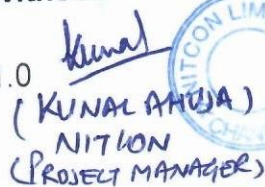 1.0
Kunal
(KUNAL AHUJA)
NITCON
(PROJECT MANAGER)
NITCON LIM
CHAN